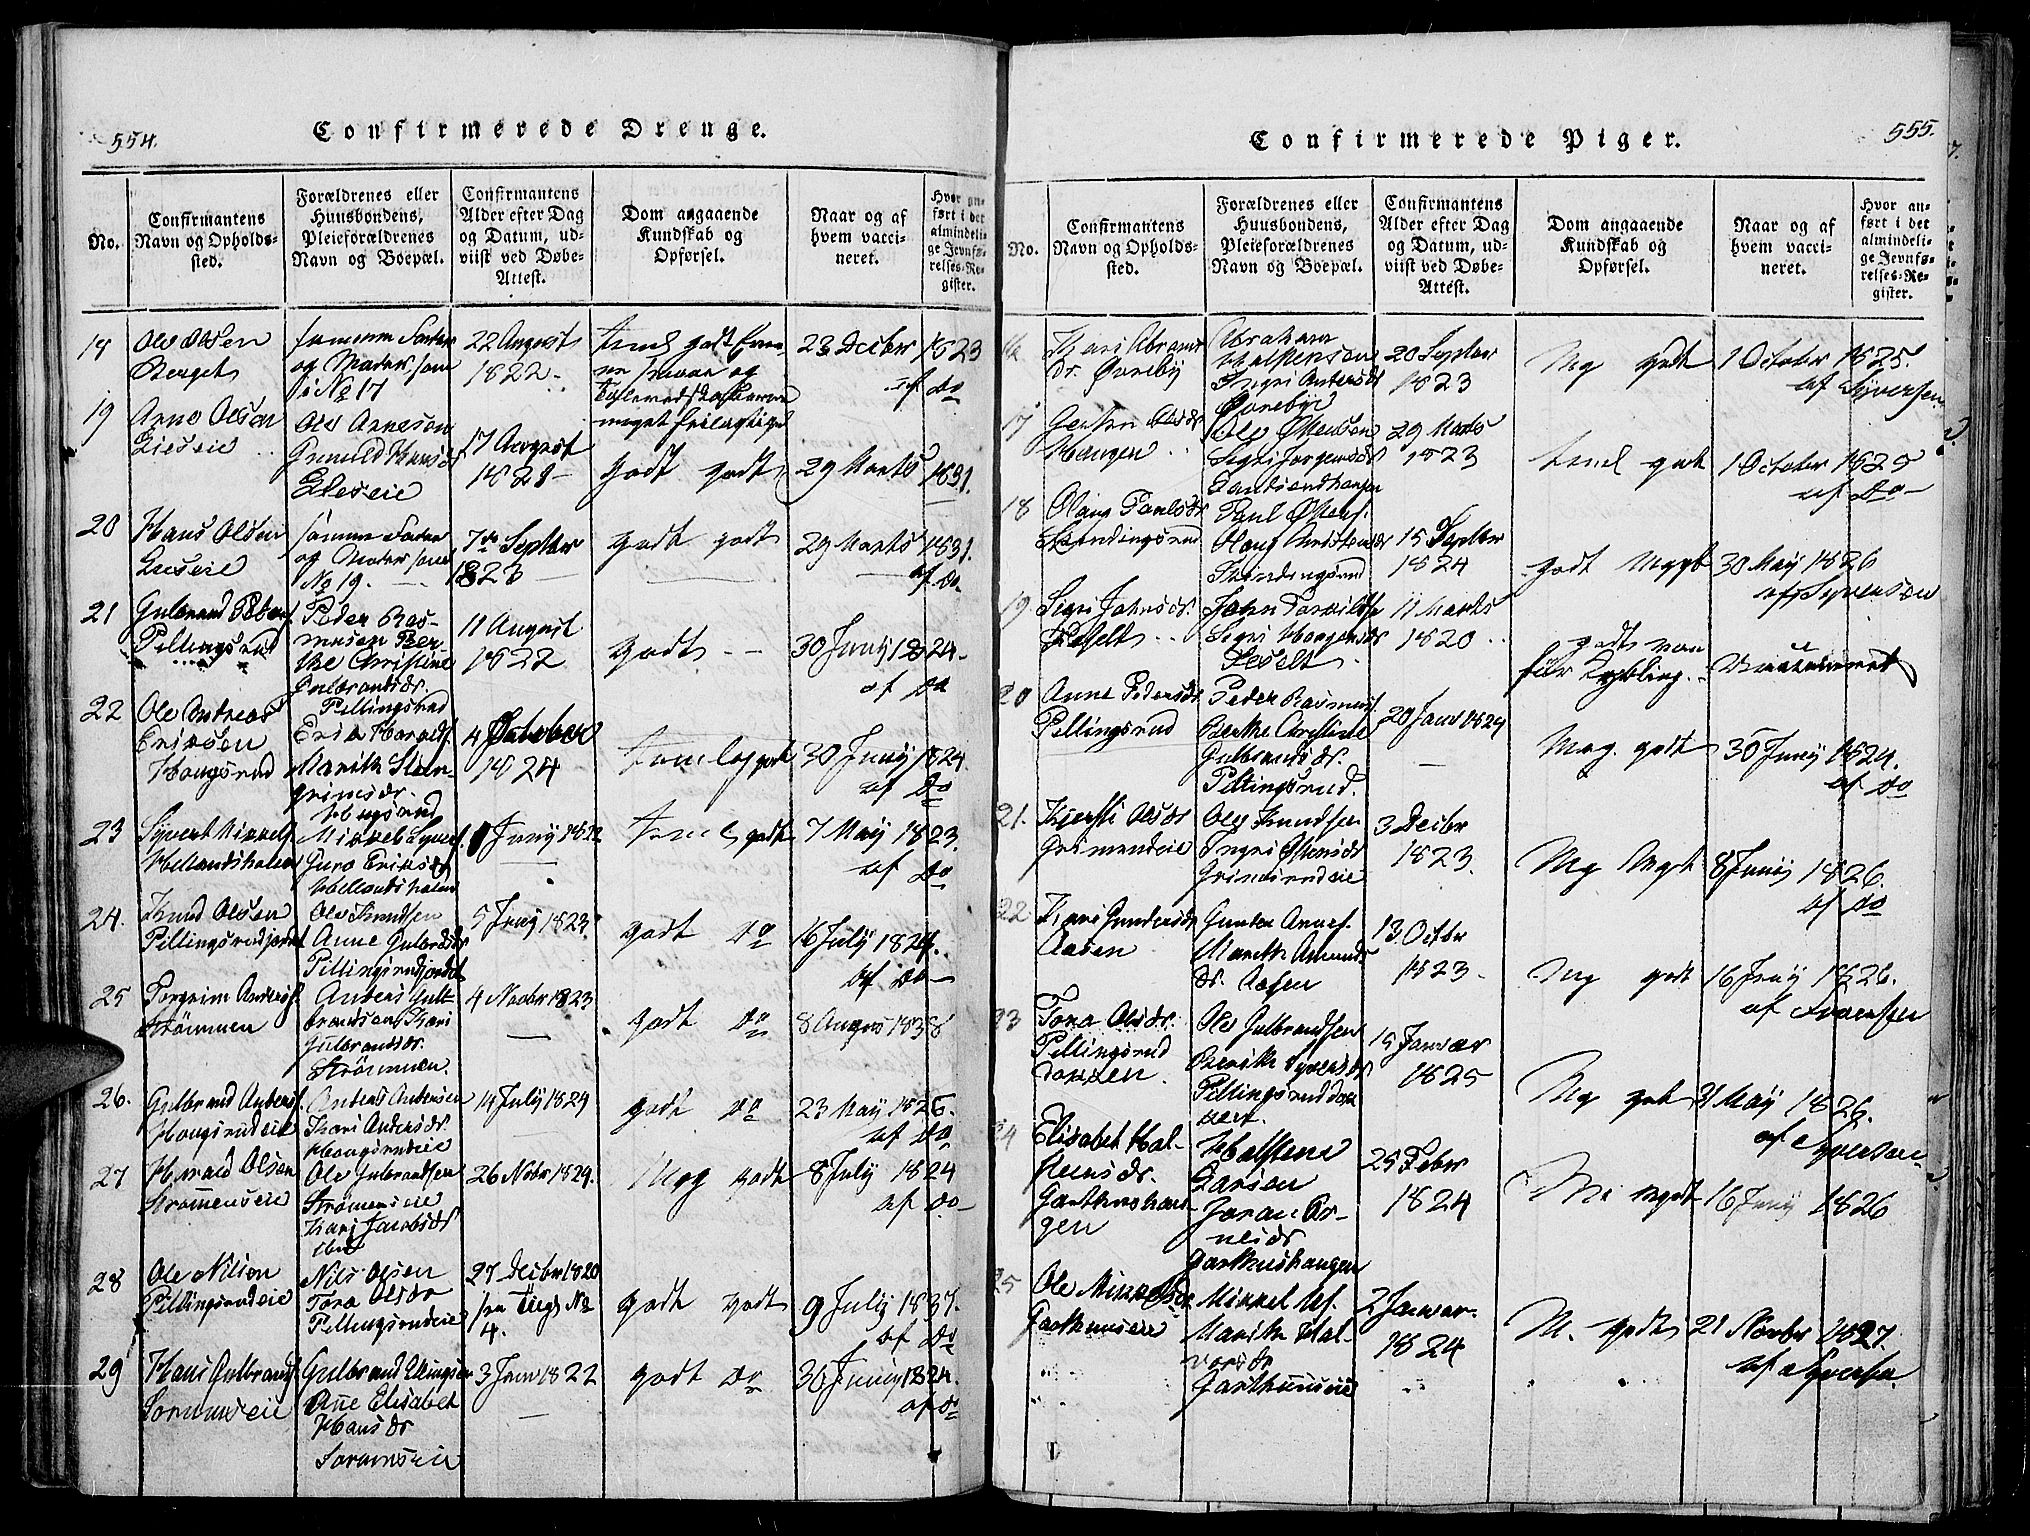 554.
Confirmerede Drenge.
No.
Confirmantens
Navn og Opholds-
sted.
Forældrenes eller
Huusbondens,
Pleieforældrenes
Navn og Boepæl.
Confirmantens
Alder efter Dag
og Datum, ud-
viist ved Døbe-
Attest.
Dom angaaende
Kundskab og
Opførsel.
Naar og af
hvem vacci-
neret.
Hvor an-
ført i det
almindeli-
ge Jevnfø-
relses-Re-
gister.
18
Ole Olsen
Berget
samme Fader
og Moder som
i No 17
22 August
1822
23 Decbr 1823
af Do
19
Arne Olsen
Ole Arnesen
17 August
1821
godt godt
29 Marts 1831.
20
Hans Olsen
samme Fader
og Moder som
No 19.
7de Septbr
1823
godt godt
29 Marts 1831
af Do.
21
Gulbrand Peders.
Pellingsrud
Peder Ras-
musen Ber-
the Christine
Gulbrandsdr.
Pellingsrud
11 August
1822
godt
30 Juny 1824
af Do
22
Ole Andreas
Eriksen
Haugsrud
Marith Stein-
grimsdr.
Haugsrud
4 October
1824
30 Juny 1824
af Do
23
Syvert Mikkels.
Guro Eriksdr
Juny 1822
godt
7 May 1823.
af Do
24.
Knud Olsen
Pellingsrudjordet
Ole Knudsen
Anne Gulbrdsdr
Pellingsrudjordet
5 Juny 1823
godt Do
16 July 1824.
af Do
25
Torgrim Anders.
Strømmen
Anders Gulb-
brandsen Kari
Gulbrandsdr.
Strømmen.
4 Novbr 1823
godt Do
8 Augus 1838
26.
Gulbrand Anders.
Haugsrudeie
Anders Andersen
Kari Andersdr.
Haugsrudeie
14 July 1824
godt Do
23 May 1826.
af Do
27
Harald Olsen
Strømenseie
Ole Gulbrandsen
Strømenseie
Kari Jacobsdr
ibid
26 Novbr 1824.
Meg godt
8 July 1824
af Do
28
Ole Nilsen
Pellingsrudeie
Nils Olsen
Tora Olsdr
Pellingsrudeie
27 Decbr 1820
4.
godt godt
9 July 1837.
af Do
29
Hans Gulbrands.
Sorumseie
Gulbrand Ellingsen
Ane Elisabet
Hansdr
Sorumseie
3 Janv 1822
godt Do
30 Juny 1824.
af Do
555.
Confirmerede Piger.
No.
Confirmantens
Navn og Opholds-
sted.
Forældrenes eller
Huusbondens,
Pleieforældrenes
Navn og Boepæl.
Confirmantens
Alder efter Dag
og Datum, ud-
viist ved Døbe-
Attest.
Dom angaaende
Kundskab og
Opførsel.
Naar og af
hvem vacci-
neret.
Hvor an-
ført i det
almindeli-
ge Jevnfø-
relses-Re-
gister.
16
Kari Abrams
dr. Øvreby
Abraham
Halstensen
Ingri Andersdr
Øvrebye
20 Septbr
1823
Mg godt
1 October 1825.
af Syversen
17
Haugen
Ole Østensen
Sigri Jorgensdr
29 Marts
1823
1 October 1825
af Do
18
Olaug Paulsdr
Skindingsrud
Paul Østens.
Skindingsrud
15 Septbr
1824
30 May 1826
af Syversen
19
Sigri Johnsdr.
Sigri Haagensdr
11 Marts
1820
godt
Vaccineret
20
Anne Pedersdr
Pellingsrud
Peder Rasmus.
Berthe Christine
Gulbrandsdr.
Pellingsrud.
20 Janv 1824
Meg. godt
30 Juny 1824.
af Do
21.
Kjersti Olsdr
Grimsrudeie
Ole Knudsen
Ingri Østensdr
Grimsrudeie
3 Decbr
1823.
Mg Mgt
8 Juny 1826.
af Do
22
Kari Gundersdr
Aasen
Gunder Arnes.
Marithe Amunds
dr. Aasen
13. Octbr
1823
Mg godt
16 Juny 1826.
af Iversen
23
Tora Olsdr.
Pellingsrud
dokken.
Ole Gulbrandsen
Berithe Syversdr
Pellingsruddok
ken.
15 Januar
1825
Mg godt
31 May 1826.
af Syversen
24
Elisabet Hal-
steensdr.
Garthushau-
gen
Halsteen
Larsen
Joran Ar-
nesdr
Garthushaugen
25 Febr
1824
16 Juny 1826
25
Ole Mikkelsdr
Garthuuseie
Mikkel
Marithe Hal-
vorsdr
Garthuuseie
2 Januar.
1824
M. godt
21 Novbr 1827.
af Syversen